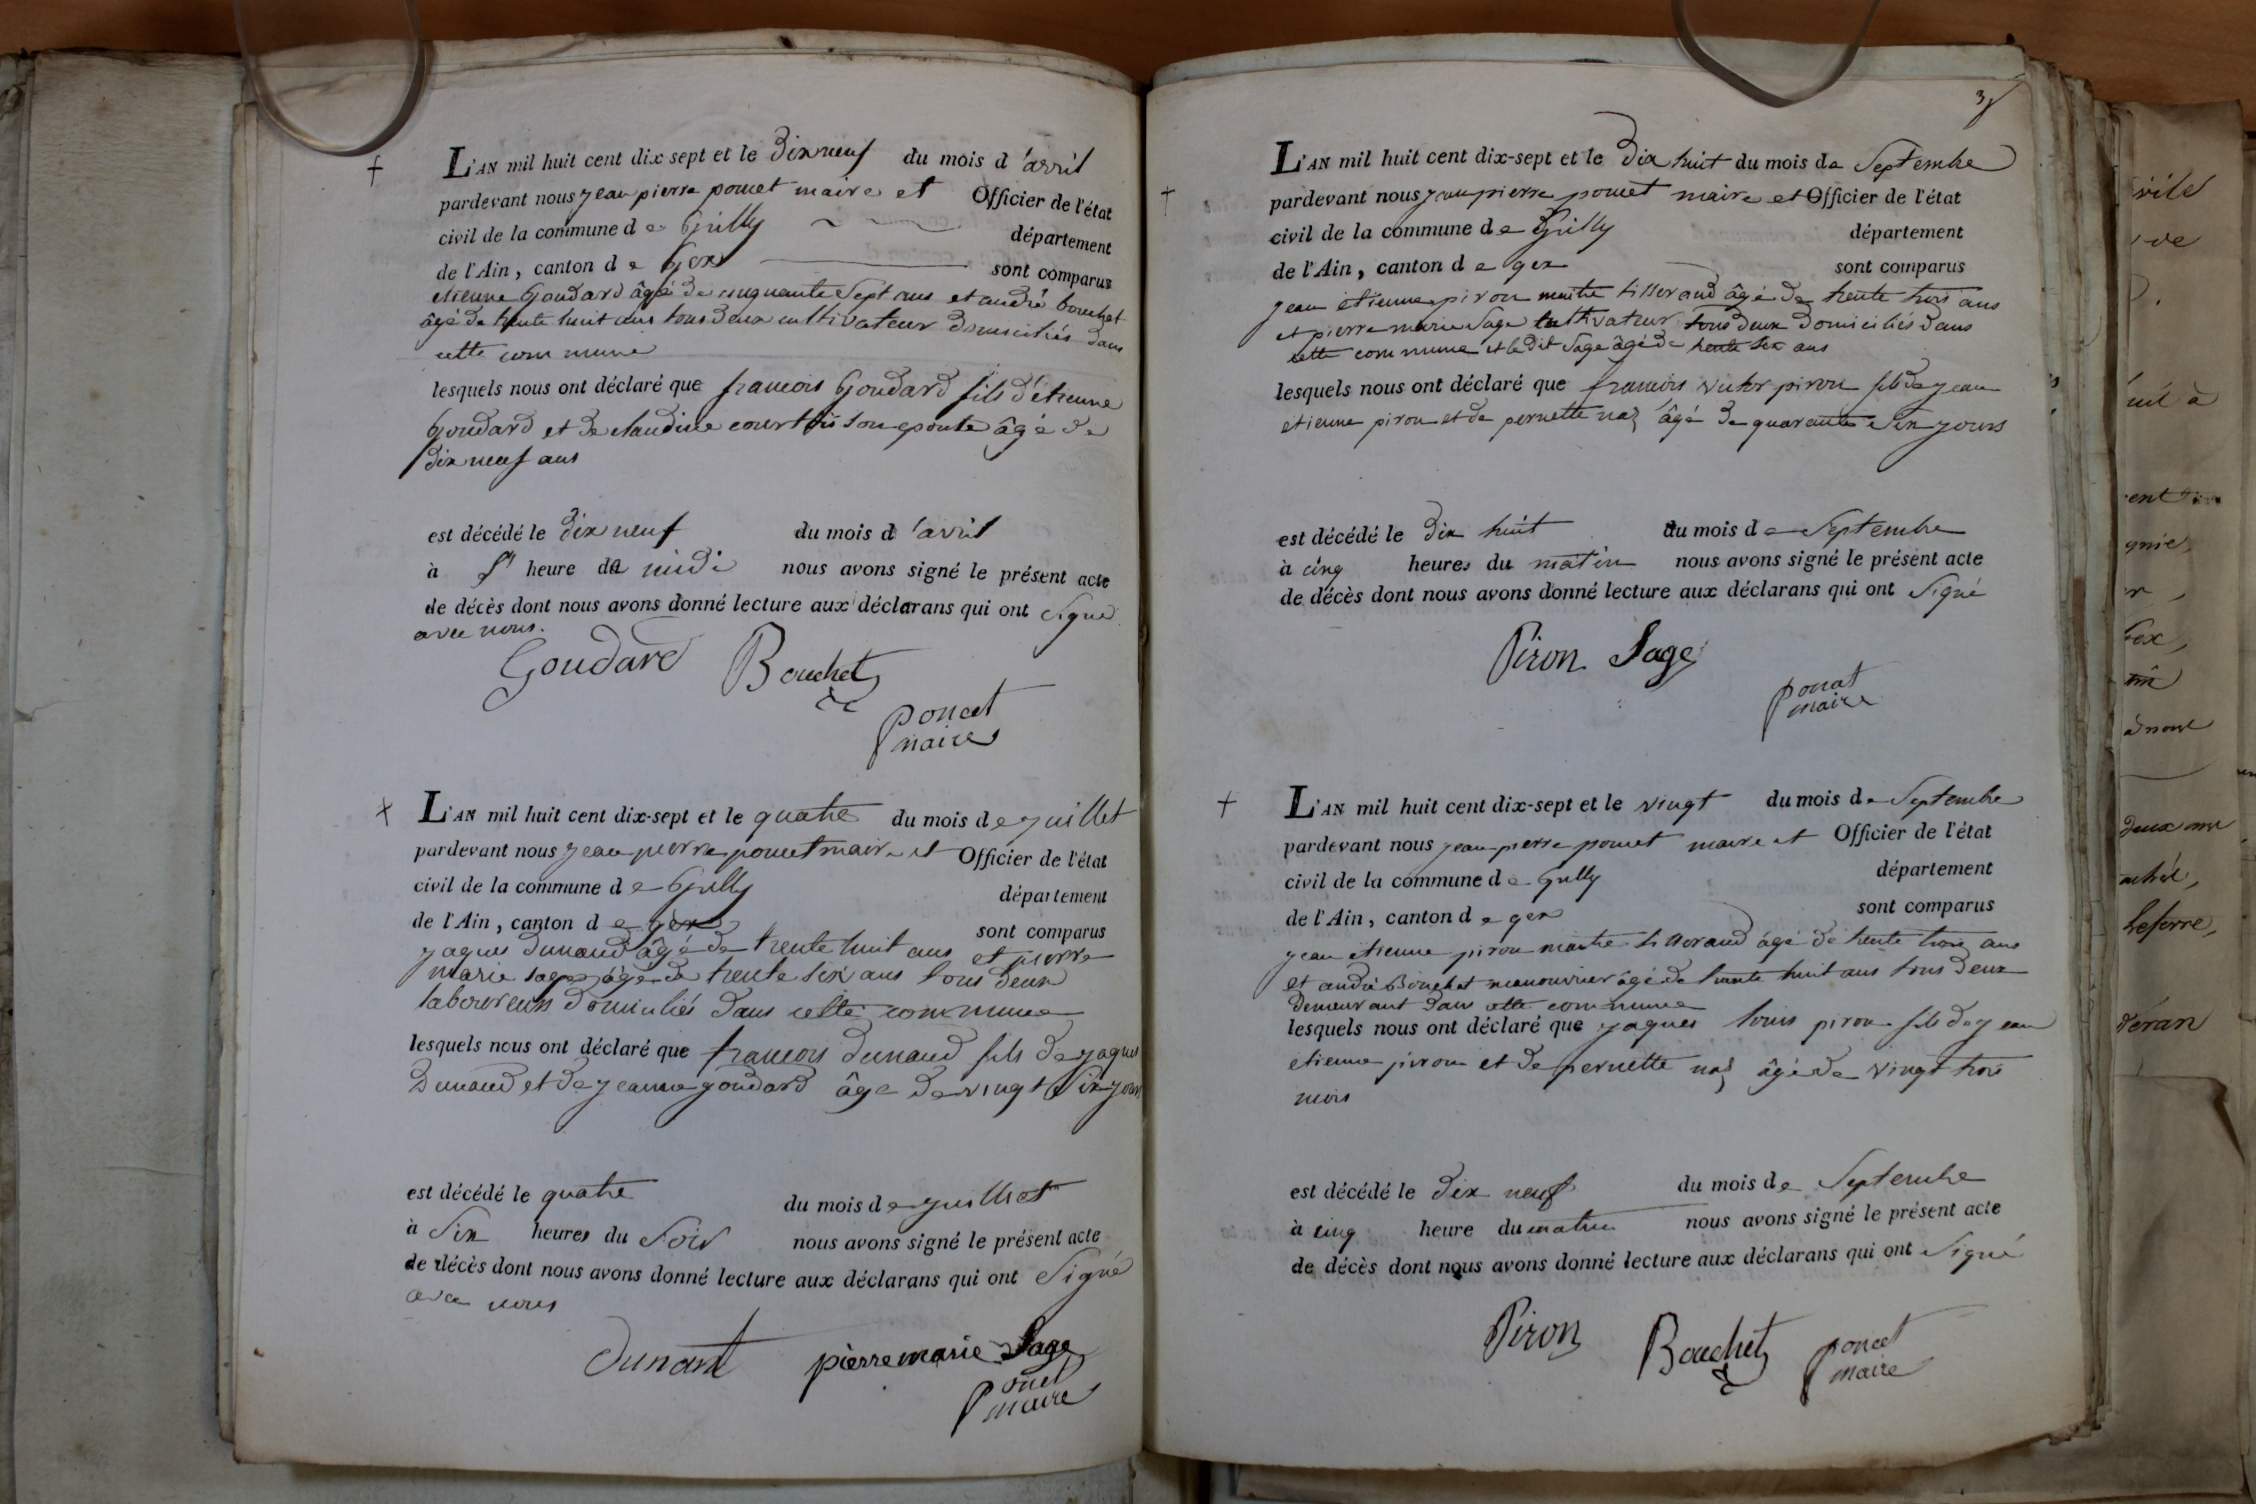 L'AN mil huit cent dix sept et le dixneuf du mois d'avril
pardevant nous jean pierre poncet maire et Officier de l'état
civil de la commune de Grilly département
de l'Ain, canton de Gex sont comparus
etienne Goudard âgé de cinquante Sept ans et andré bouchet
âgé de trente huit ans tous deux cultivateur domiciliés dans
cette commune
lesquels nous ont déclaré que francois Goudard fils d'etienne
Goudard et de claudine courtois son epouse âgé de
dix neuf ans
est décédé le dix neuf du mois d'avril
à heure de midi nous avons signé le présent acte
de décès dont nous avons donné lecture aux déclarans qui ont signé
avec nous.
Goudard Bouchet
Poncet
maire
L'AN mil huit cent dix-sept et le quatre du mois de juillet
pardevant nous jean pierre poncet maire et Officier de l'état
civil de la commune de Grilly département
de l'Ain, canton de gex sont comparus
jaques dunand âgé de trente huit ans et pierre
marie sage âgé de trente six ans tous deux
laboureurs domiciliés dans cette commune
lesquels nous ont déclaré que francois dunand fils de jaques
Dunand et de jeanne goudard âge de vingt six jours
est décédé le quatre du mois de juillet
à Six heures du Soir nous avons signé le présent acte
de décès dont nous avons donné lecture aux déclarans qui ont Signé
avec nous
Dunant pierre marie Sage
Poncet
maire
3
L'AN mil huit cent dix-sept et le Dix huit du mois de Septembre
pardevant nous jean pierre poncet maire et Officier de l'état
civil de la commune de Grilly département
de l'Ain, canton de gex sont comparus
jean etienne piron maitre tisserand âgé de trente trois ans
et pierre marie Sage cultivateur tous deux domiciliés dans
cette commune et le dit Sage âgé de trente six ans
lesquels nous ont déclaré que francois victor piron fils de jean
etienne piron et de pernette naz âgé de quarante six jours
est décédé le dix huit du mois de Septembre
à cinq heures du matin nous avons signé le présent acte
de décès dont nous avons donné lecture aux déclarans qui ont Signé
Piron Sage
Poncet
maire
L'AN mil huit cent dix-sept et le vingt du mois de Septembre
pardevant nous jean pierre poncet maire et Officier de l'état
civil de la commune de Grilly département
de l'Ain, canton de gex sont comparus
jean etienne piron maitre tisserand âgé de trente trois ans
et andré Bouchet manouvrier âgé de trente huit ans tous deux
demeurant dans cette commune
lesquels nous ont déclaré que jaques louis piron fils de jean
etienne piron et de pernette naz âgé de vingt trois
mois
est décédé le dix neuf du mois de Septembre
à cinq heure du matin nous avons signé le présent acte
de décès dont nous avons donné lecture aux déclarans qui ont Signé
Piron Bouchet Poncet
maire